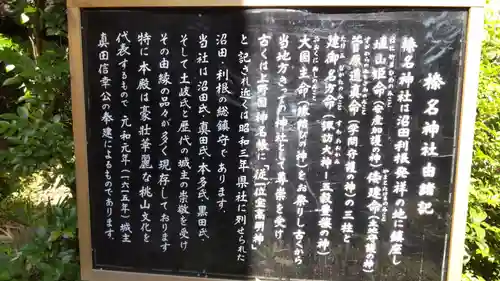 榛名神社由緒記
榛名神社は沼田利根発祥の地に鎮座し
埴山姫命(安産加護の神)倭建命(五武運の神)
菅原道真命(学問守護の神)の三柱と
建御名方命(諏訪大神・五穀豊穣の神)
大国主命(縁結びの神)をお祭りし古くから
当地方きっての神社として尊崇を受け
古くは上野国神名帳に「従一位宝高明神」
と記され近くは昭和三年県社に列せられた
沼田・利根の総鎮守であります。
当社は沼田氏・真田氏・本多氏・黒田氏・
そして土岐氏と歴代の城主の崇敬を受け
その由縁の品々が多く現存しております
特に本殿は豪壮華麗な桃山文化を
代表するもので元和元年(一六一五年)城主
真田信幸公の奉建によるものであります。